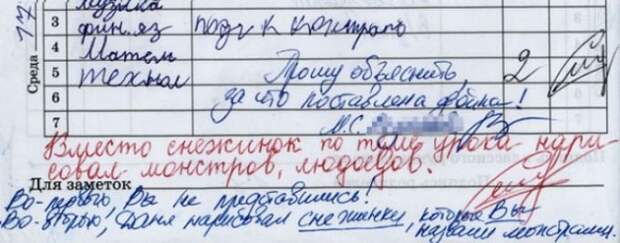 17
Среда
3 фин. яз подг к контрол
4 Матем
5 технол Прошу объяснить, 2
6 за что поставлена двойка!
7 М.С.
Вместо снежинок по теме урока нари
совал монстров, людоедов.
Для заметок
Во-первых, Вы не представились!
Во-вторых, Даня нарисовал снежинки, которые Вы
назвали монстрами.